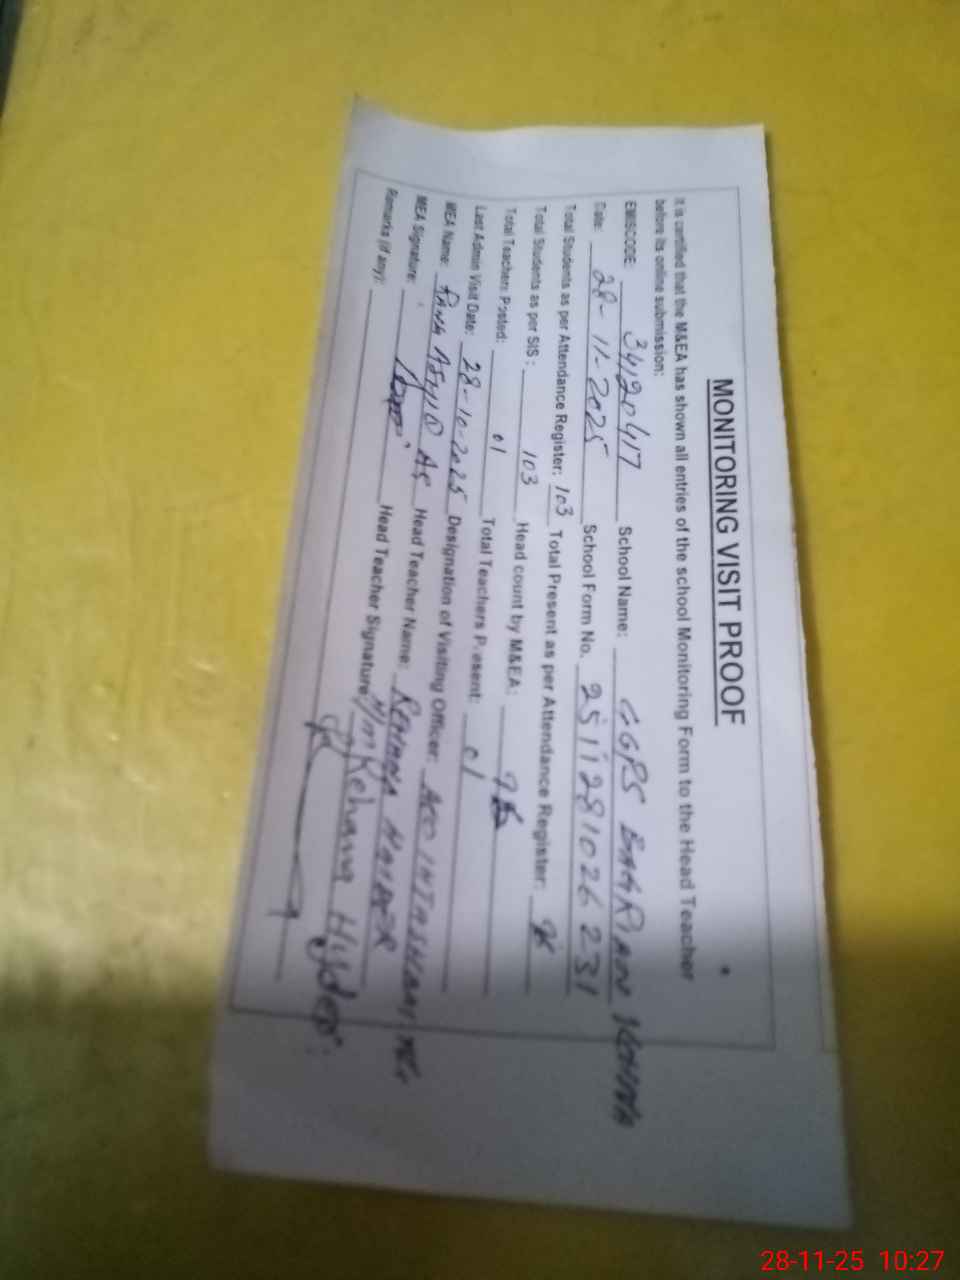 MONITORING VISIT PROOF
It is certified that the M&EA has shown all entries of the school Monitoring Form to the Head Teacher
before its online submission:
EMISCODE: 34120417 School Name: GGPS BAGRIAN
Date: 28-11-2025 School Form No. 2511281026231
Total Students as per Attendance Register: 103 Total Present as per Attendance Register:
Total Students as per SIS: 103 Head count by M&EA:
Total Teachers Posted: 01 Total Teachers Present: 01
Last Admin Visit Date: 28-10-2025 Designation of Visiting Officer:
MEA Name: RANA Head Teacher Name: REHANA HAIDER
MEA Signature: Head Teacher Signature: Rehana Hyder
Remarks (if any):
28-11-25 10:27